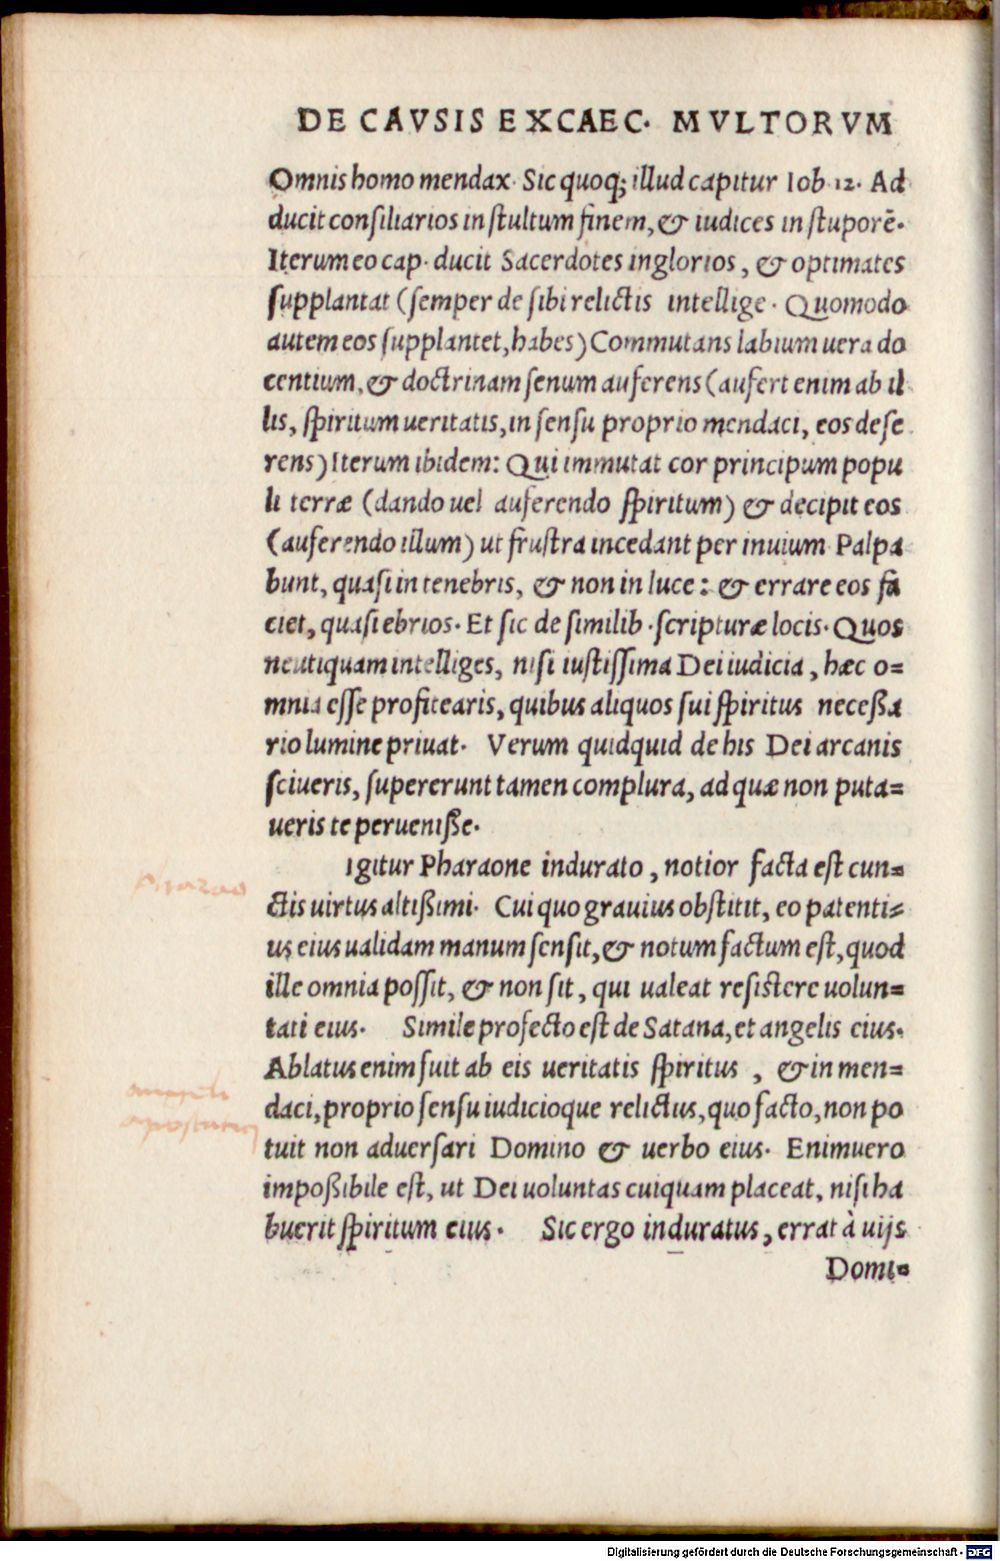 DE CAVSIS EXCAEC. MVLTORVM
Omnis homo mendax. Sic quoq; illud capitur Iob 12. Ad
ducit consiliarios in stultum finem, & iudices in stuporē.
Iterum eo cap. ducit Sacerdotes inglorios, & optimates
supplantat (semper de sibi relictis intellige. Quomodo
autem eos supplantet, habes) Commutans labium uera do
centium, & doctrinam senum auferens (aufert enim ab il
lis, spiritum ueritatis, in sensu proprio mendaci, eos dese
rens) Iterum ibidem: Qui immutat cor principum popu
li terræ (dando uel auferendo spiritum) & decipit eos
(auferendo illum) ut frustra incedant per inuium. Palpa
bunt, quasi in tenebris, & non in luce: & errare eos fa
ciet, quasi ebrios. Et sic de similib. scripturæ locis. Quos
neutiquam intelliges, nisi iustissima Dei iudicia, hæc o=
mnia esse profitearis, quibus aliquos sui spiritus necessa
rio lumine priuat. Verum quidquid de his Dei arcanis
sciueris, supererunt tamen complura, ad quæ non puta=
ueris te peruenisse.
Igitur Pharaone indurato, notior facta est cun=
ctis uirtus altissimi. Cui quo grauius obstitit, eo patenti=
us eius ualidam manum sensit, & notum factum est, quod
ille omnia possit, & non sit, qui ualeat resistere uolun=
tati eius. Simile profecto est de Satana, et angelis eius.
Ablatus enim fuit ab eis ueritatis spiritus, & in men=
daci, proprio sensu iudicioque relictus, quo facto, non po
tuit non aduersari Domino & uerbo eius. Enimuero
impossibile est, ut Dei uoluntas cuiquam placeat, nisi ha
buerit spiritum eius. Sic ergo induratus, errat à uijs
Domi=
Pharao
angeli
Digitalisierung gefördert durch die Deutsche Forschungsgemeinschaft - DFG